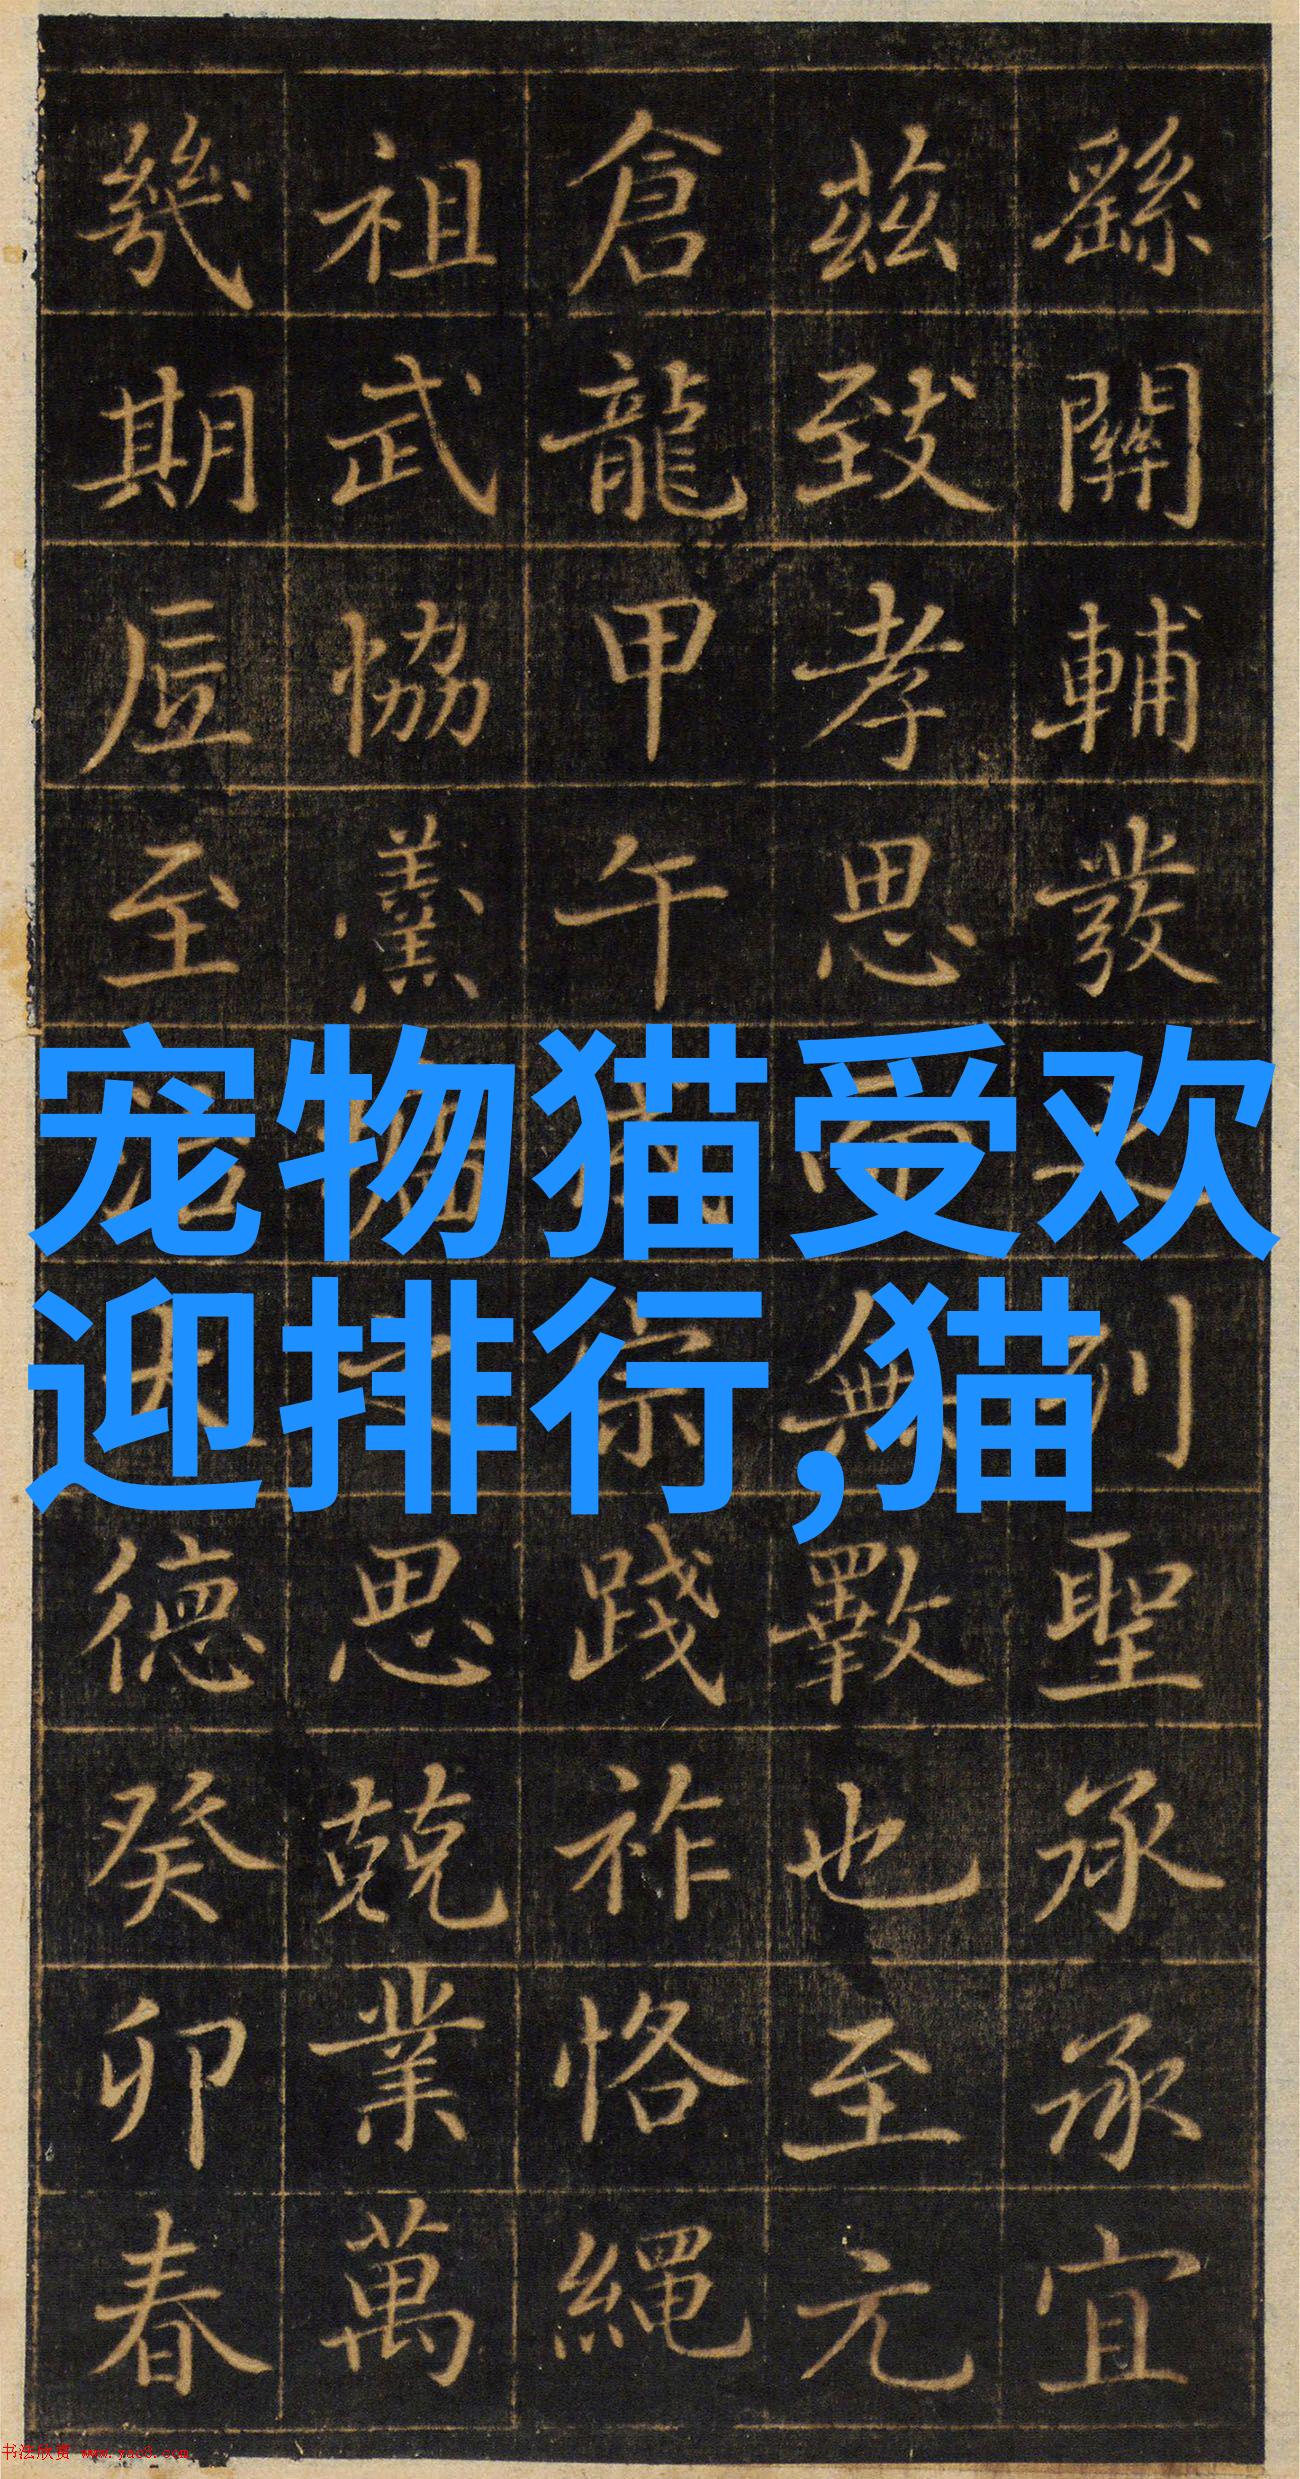 宠物猫受欢
迎排行,猫
繇關輔發列聖承承宜
茲致孝思無斁也至元
倉龍甲午宗踐祚恪繩
祖武恊羹思兢業萬
幾期底至德癸卯春
书法欣赏 www.yac8.com